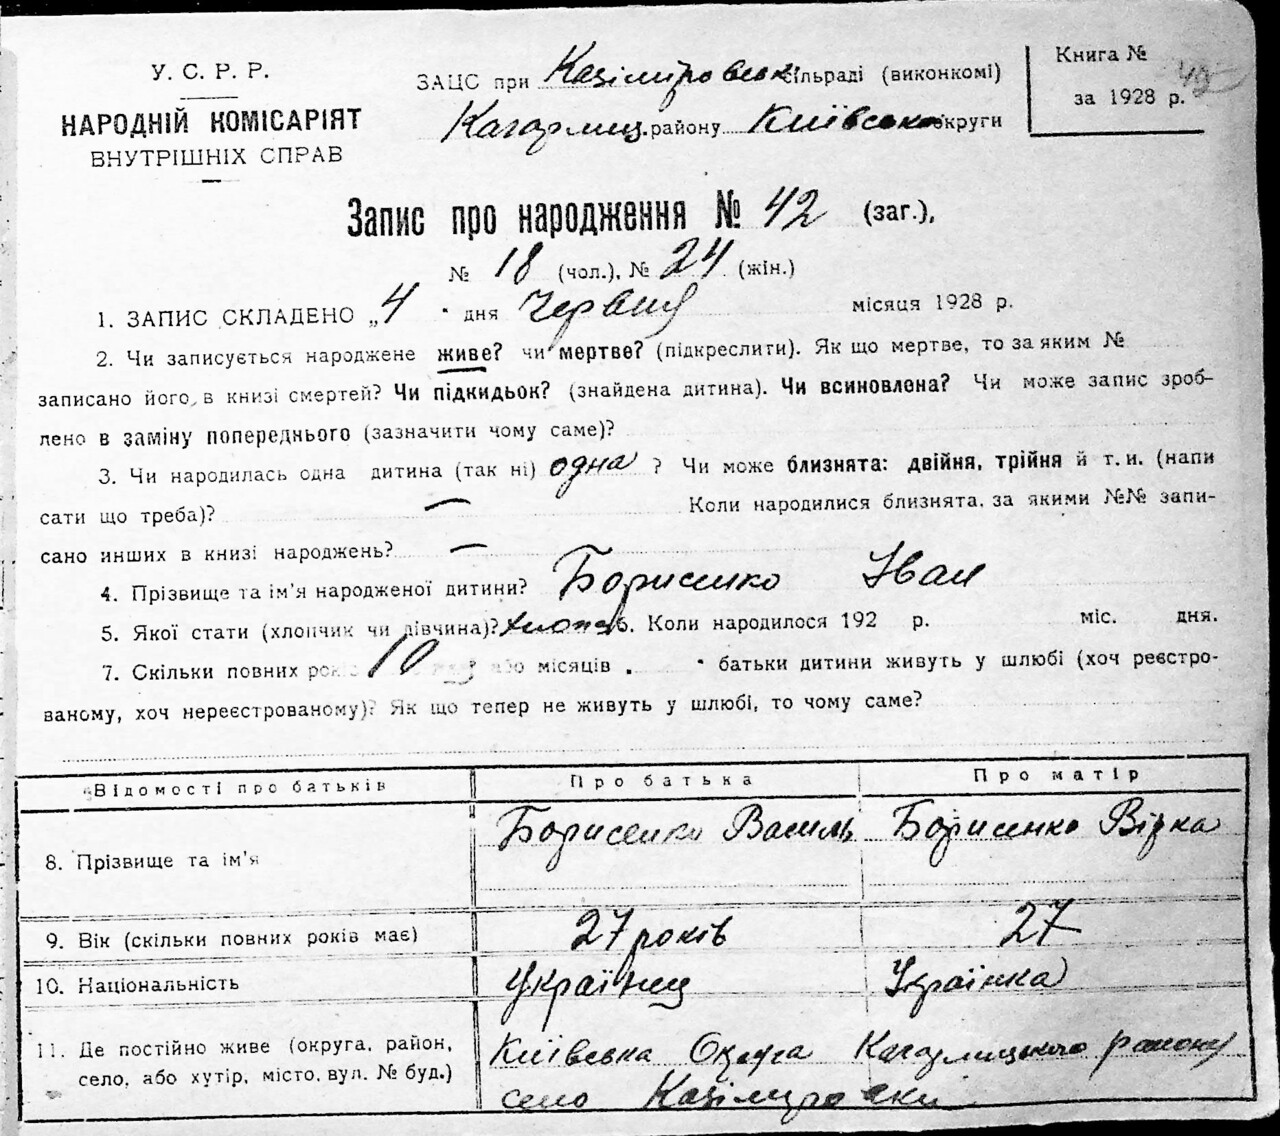 У. С. Р. Р.
НАРОДНІЙ КОМІСАРІЯТ
ВНУТРІШНІХ СПРАВ
ЗАЦС при Казіміровській сільраді (виконкомі)
Кагарлиц. району Київської округи
Книга №
42
за 1928 р.
Запис про народження № 42 (заг.),
№ 18 (чол.), № 24 (жін.)
1. ЗАПИС СКЛАДЕНО „4" дня Червня місяця 1928 р.
2. Чи записується народжене живе? чи мертве? (підкреслити). Як що мертве, то за яким №
записано його в книзі смертей? Чи підкидьок? (знайдена дитина). Чи всиновлена? Чи може запис зроб-
лено в заміну попереднього (зазначити чому саме)?
3. Чи народилась одна дитина (так ні) одна ? Чи може близнята: двійня, трійня й т. и. (напи
сати що треба)? — Коли народилися близнята, за якими №№ запи-
сано инших в книзі народжень? —
4. Прізвище та ім'я народженої дитини? Борисенко Іван
5. Якої стати (хлопчик чи дівчина)? хлопч 6. Коли народилося 192 р. міс. дня.
7. Скільки повних років 10 або місяців . " батьки дитини живуть у шлюбі (хоч реєстро-
ваному, хоч нереєстрованому)? Як що тепер не живуть у шлюбі, то чому саме?
Відомості про батьків Про батька Про матір
8. Прізвище та ім'я Борисенко Василь Борисенко Вірка
9. Вік (скільки повних років має) 27 років 27
10. Національність Українец Українка
11. Де постійно живе (округа, район, Київська Округа Кагарлицького району
село, або хутір, місто, вул. № буд.) село Казіміровки